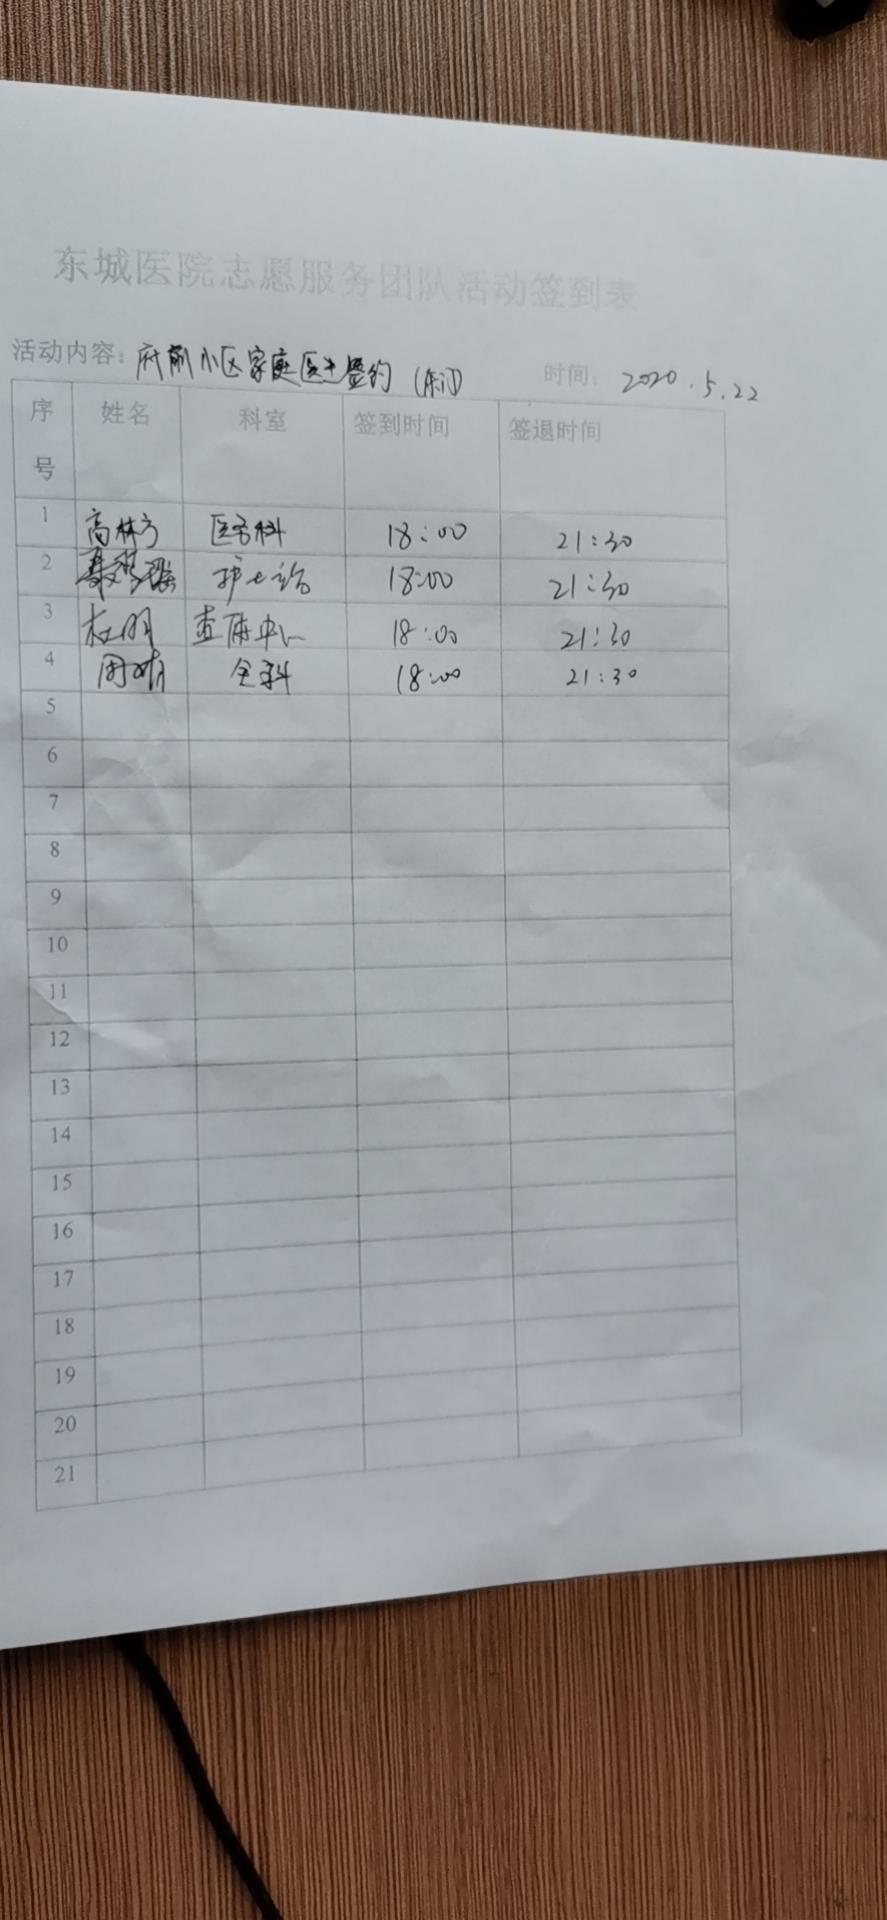 东城医院志愿服务团队活动签到表
活动内容：府前小区家庭医生签约（东门） 时间：2020.5.22
序号 姓名 科室 签到时间 签退时间
1 高林方 医务科 18:00 21:30
2 护士站 18:00 21:30
3 杜明 查体中心 18:00 21:30
4 周 全科 18:00 21:30
5
6
7
8
9
10
11
12
13
14
15
16
17
18
19
20
21